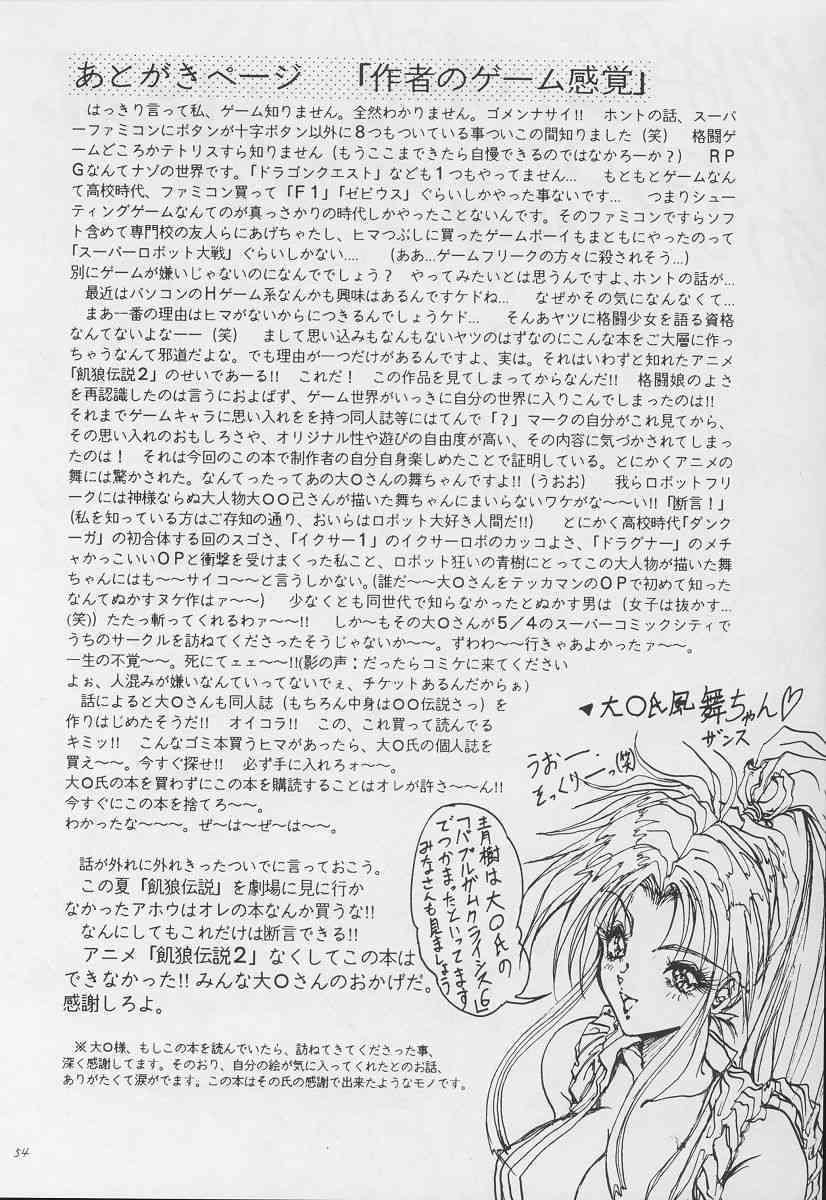 あとがきページ 「作者のゲーム感覚」
はっきり言って私、ゲーム知りません。全然わかりません。ゴメンナサイ!! ホントの話、スーパ
ーファミコンにボタンが十字ボタン以外に8つもついている事ついこの間知りました(笑) 格闘ゲ
ームどころかテトリスすら知りません(もうここまできたら自慢できるのではなかろーか?) RP
Gなんてナゾの世界です。「ドラゴンクエスト」なども1つもやってません… もともとゲームなん
て高校時代、ファミコン買って「F1」「ゼビウス」ぐらいしかやった事ないです… つまりシュー
ティングゲームなんてのが真っさかりの時代しかやったことないんです。そのファミコンですらソフ
ト含めて専門校の友人らにあげちゃたし、ヒマつぶしに買ったゲームボーイもまともにやったのって
「スーパーロボット大戦」ぐらいしかない…. (ああ…ゲームフリークの方々に殺されそう…)
別にゲームが嫌いじゃないのになんででしょう? やってみたいとは思うんですよ、ホントの話が…
最近はパソコンのHゲーム系なんかも興味はあるんですケドね… なぜかその気になんなくて…
まあ一番の理由はヒマがないからにつきるんでしょうケド… そんあヤツに格闘少女を語る資格
なんてないよなーー(笑) まして思い込みもなんもないヤツのはずなのにこんな本をご大層に作っ
ちゃうなんて邪道だよな。でも理由が一つだけがあるんですよ、実は。それはいわずと知れたアニメ
「飢狼伝説2」のせいであーる!! これだ! この作品を見てしまってからなんだ!! 格闘娘のよさ
を再認識したのは言うにおよばず、ゲーム世界がいっきに自分の世界に入りこんでしまったのは!!
それまでゲームキャラに思い入れをを持つ同人誌等にはてんで「?」マークの自分がこれ見てから、
その思い入れのおもしろさや、オリジナル性や遊びの自由度が高い、その内容に気づかされてしまっ
たのは! それは今回のこの本で制作者の自分自身楽しめたことで証明している。とにかくアニメの
舞には驚かされた。なんてったってあの大〇さんの舞ちゃんですよ!!(うおお) 我らロボットフリ
ークには神様ならぬ大人物大〇〇己さんが描いた舞ちゃんにまいらないワケがな〜〜い!!「断言!」
(私を知っている方はご存知の通り、おいらはロボット大好き人間だ!!) とにかく高校時代「ダンク
ーガ」の初合体する回のスゴさ、「イクサー1」のイクサーロボのカッコよさ、「ドラグナー」のメチ
ャかっこいいOPと衝撃を受けまくった私こと、ロボット狂いの青樹にとってこの大人物が描いた舞
ちゃんにはも〜〜サイコ〜〜と言うしかない。(誰だ〜〜大〇さんをテッカマンのOPで初めて知った
なんてぬかすヌケ作はァ〜〜) 少なくとも同世代で知らなかったとぬかす男は(女子は抜かす…
(笑))たたっ斬ってくれるわァ〜〜!! しか〜もその大〇さんが5/4のスーパーコミックシティで
うちのサークルを訪ねてくださったそうじゃないか〜〜。ずわわ〜〜行きゃあよかったァ〜〜。
一生の不覚〜〜。死にてェェ〜〜!!(影の声:だったらコミケに来てください
よぉ、人混みが嫌いなんていってないでぇ、チケットあるんだからぁ)
話によると大〇さんも同人誌(もちろん中身は〇〇伝説さっ)を
作りはじめたそうだ!! オイコラ!! この、これ買って読んでる
キミッ!! こんなゴミ本買うヒマがあったら、大〇氏の個人誌を
買え〜〜。今すぐ探せ!! 必ず手に入れろォ〜〜。
大〇氏の本を買わずにこの本を購読することはオレが許さ〜〜ん!!
今すぐにこの本を捨てろ〜〜。
わかったな〜〜〜。ぜ〜は〜ぜ〜は〜〜。
話が外れに外れきったついでに言っておこう。
この夏「飢狼伝説」を劇場に見に行か
なかったアホウはオレの本なんか買うな!!
なんにしてもこれだけは断言できる!!
アニメ「飢狼伝説2」なくしてこの本は
できなかった!!みんな大〇さんのおかげだ。
感謝しろよ。
※大〇様、もしこの本を読んでいたら、訪ねてきてくださった事、
深く感謝してます。そのおり、自分の絵が気に入ってくれたとのお話、
ありがたくて涙がでます。この本はその氏の感謝で出来たようなモノです。
▼大〇氏風舞ちゃん♡
ザンス
うおー.
そっくりーっ(笑)
青樹は大〇氏の
「バブルガムクライシス6」
でつかまったといってます
みなさんも見ましょう
54